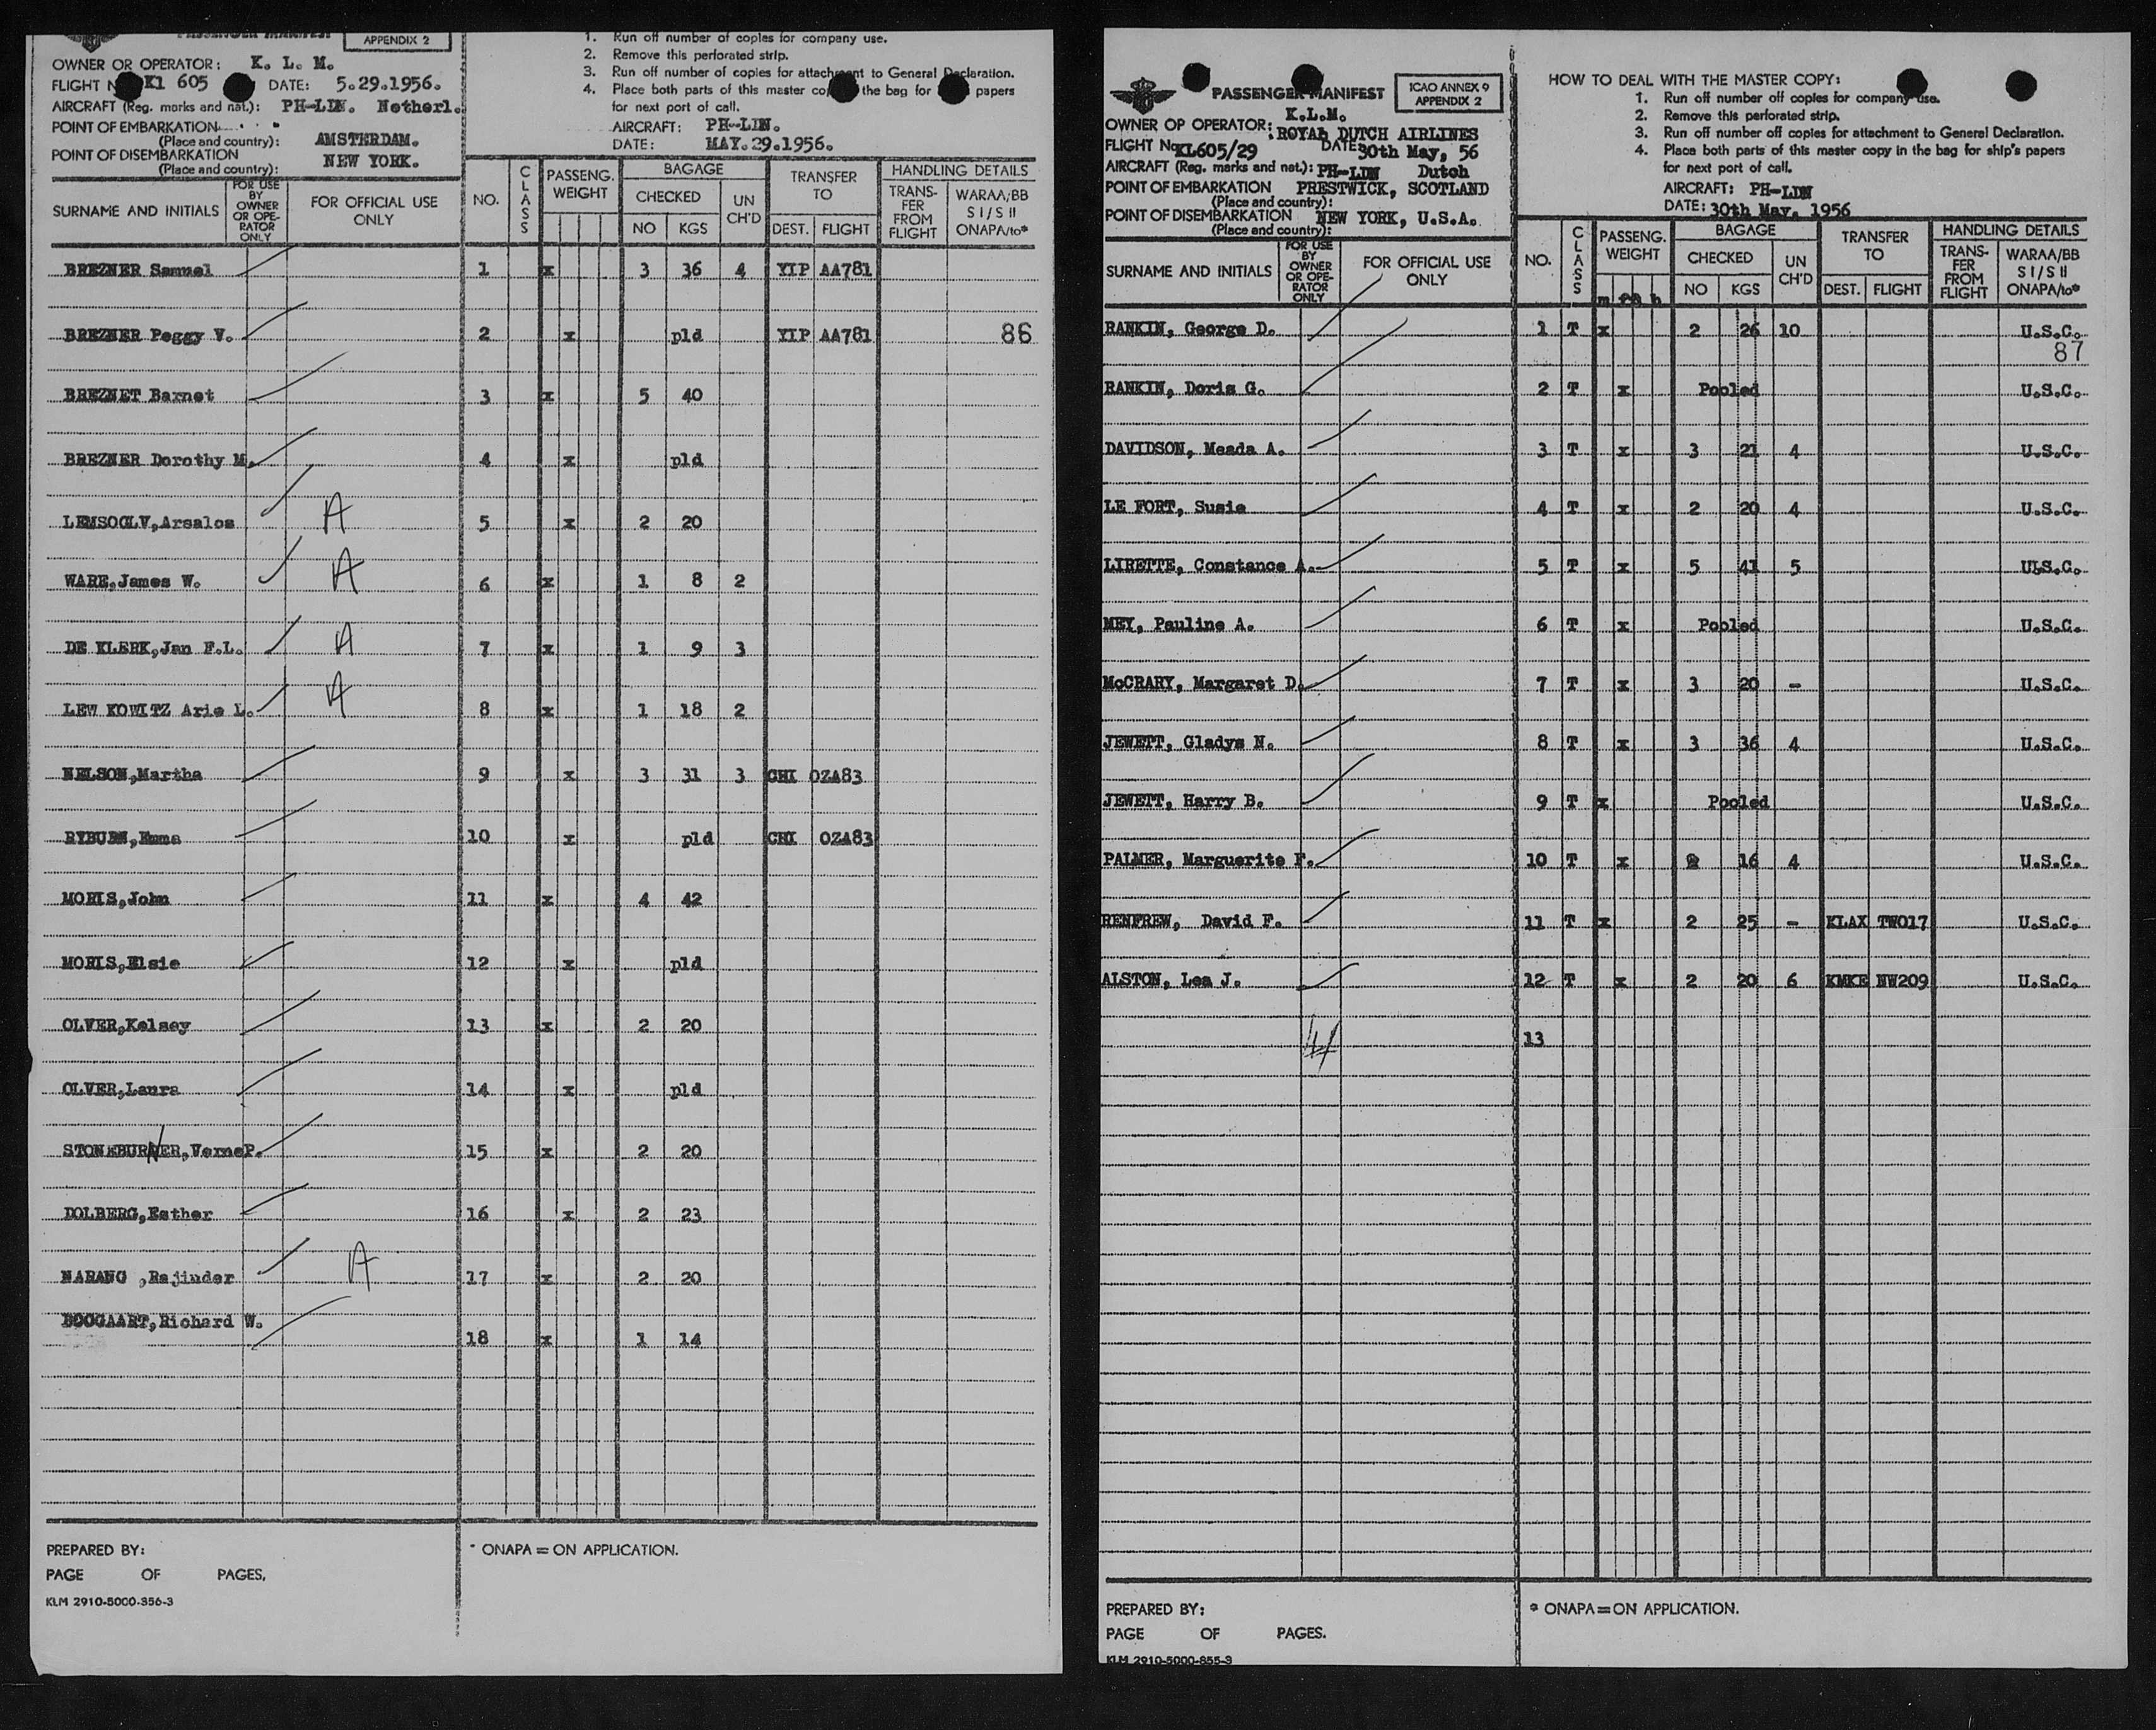 PASSENGER MANIFEST
APPENDIX 2
OWNER OR OPERATOR: K. L. M.
FLIGHT N Kl 605 DATE: 5.29.1956.
AIRCRAFT (Reg. marks and nat.): PH-LIN. Netherl.
POINT OF EMBARKATION
(Place and country): AMSTERDAM.
POINT OF DISEMBARKATION
(Place and country): NEW YORK.
1. Run off number of copies for company use.
2. Remove this perforated strip.
3. Run off number of copies for attachment to General Declaration.
4. Place both parts of this master co the bag for papers
for next port of call.
AIRCRAFT: PH-LIN.
DATE: MAY.29.1956.
SURNAME AND INITIALS FOR USE BY OWNER OR OPE-RATOR ONLY FOR OFFICIAL USE ONLY NO. CLASS PASSENG. WEIGHT BAGAGE CHECKED NO KGS UN CH'D TRANSFER TO DEST. FLIGHT HANDLING DETAILS TRANS-FER FROM FLIGHT WARAA/BB S I/S II ONAPA/to*
BREZNER Samuel 1 x 3 36 4 YIP AA781
BREZNER Peggy V. 2 x pld YIP AA781 86
BREZNET Barnet 3 x 5 40
BREZNER Dorothy M. 4 x pld
LEMSOGLV,Arsalos A 5 x 2 20
WARE,James W. A 6 x 1 8 2
DE KLERK,Jan F.L. A 7 x 1 9 3
LEW KOWITZ Arie L. A 8 x 1 18 2
NELSON,Martha 9 x 3 31 3 CHI OZA83
RYBURN,Emma 10 x pld CHI OZA83
MORIS,John 11 x 4 42
MORIS,Elsie 12 x pld
OLVER,Kelsey 13 x 2 20
OLVER,Laura 14 x pld
STONEBURNER,VerneP. 15 x 2 20
DOLBERG,Esther 16 x 2 23
NARANG ,Rajinder A 17 x 2 20
BOOGAART,Richard W. 18 x 1 14
PREPARED BY:
PAGE OF PAGES,
KLM 2910-5000-356-3
* ONAPA = ON APPLICATION.
PASSENGER MANIFEST
ICAO ANNEX 9
APPENDIX 2
K.L.M.
OWNER OP OPERATOR: ROYAL DUTCH AIRLINES
FLIGHT No KL605/29 DATE 30th May, 56
AIRCRAFT (Reg. marks and nat.): PH-LIN Dutch
POINT OF EMBARKATION PRESTWICK, SCOTLAND
(Place and country):
POINT OF DISEMBARKATION NEW YORK, U.S.A.
(Place and country):
HOW TO DEAL WITH THE MASTER COPY:
1. Run off number off copies for company use.
2. Remove this perforated strip.
3. Run off number off copies for attachment to General Declaration.
4. Place both parts of this master copy in the bag for ship's papers
for next port of call.
AIRCRAFT: PH-LIN
DATE: 30th May, 1956
SURNAME AND INITIALS FOR USE BY OWNER OR OPE-RATOR ONLY FOR OFFICIAL USE ONLY NO. CLASS PASSENG. WEIGHT BAGAGE CHECKED NO KGS UN CH'D TRANSFER TO DEST. FLIGHT HANDLING DETAILS TRANS-FER FROM FLIGHT WARAA/BB S I/S II ONAPA/to*
RANKIN, George D. 1 T x 2 26 10 U.S.C.
87
RANKIN, Doris G. 2 T x Pooled U.S.C.
DAVIDSON, Meada A. 3 T x 3 21 4 U.S.C.
LE FORT, Susie 4 T x 2 20 4 U.S.C.
LIRETTE, Constance A. 5 T x 5 41 5 U.S.C.
MEY, Pauline A. 6 T x Pooled U.S.C.
McCRARY, Margaret D. 7 T x 3 20 - U.S.C.
JEWETT, Gladys N. 8 T x 3 36 4 U.S.C.
JEWETT, Harry B. 9 T x Pooled U.S.C.
PALMER, Marguerite F. 10 T x 2 16 4 U.S.C.
RENFREW, David F. 11 T x 2 25 - KLAX TW017 U.S.C.
ALSTON, Lea J. 12 T x 2 20 6 KMKE NW209 U.S.C.
13
PREPARED BY:
PAGE OF PAGES.
KLM 2910-5000-855-3
* ONAPA = ON APPLICATION.